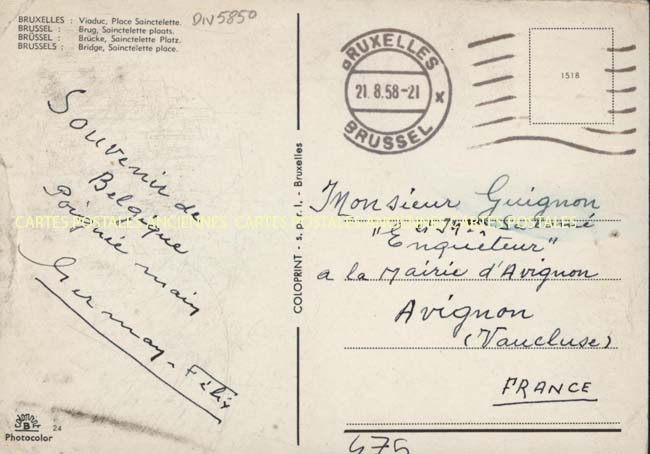 BRUXELLES : Viaduc, Place Sainctelette.
BRUSSEL : Brug, Sainctelette plaats.
BRÜSSEL : Brücke, Sainctelette Platz.
BRUSSELS : Bridge, Sainctelette place.
DIV5850
Souvenir de
Belgique
Poignée main
Germay-Félix
COLOPRINT - s. p. r. l. - Bruxelles
BRUXELLES
21.8.58-21
BRUSSEL
x
1518
Monsieur Guignon
"Enquêteur"
a la Mairie d'Avignon
Avignon
(Vaucluse)
FRANCE
475
B
Photocolor
24
CARTES POSTALES ANCIENNES CARTES POSTALES ANCIENNES CARTES POSTALES ANCIENNES